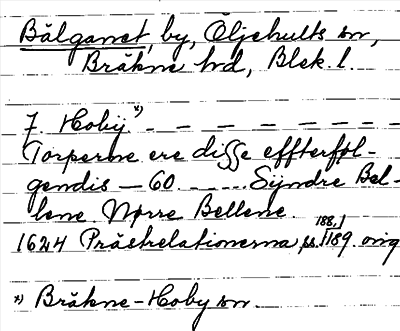 Bälganet, by, Öljehults sn,
Bräkne hd, Blek. l.
7. Hobij.*) — — — — — —
Torperne ere disse effterføl-
gendis — 60. ..... Sijndre Bel-
lene. Nørre Bellene.
188,1
1624 Prästrelationerna, ss. 189. orig
*) Bräkne-Hoby sn.